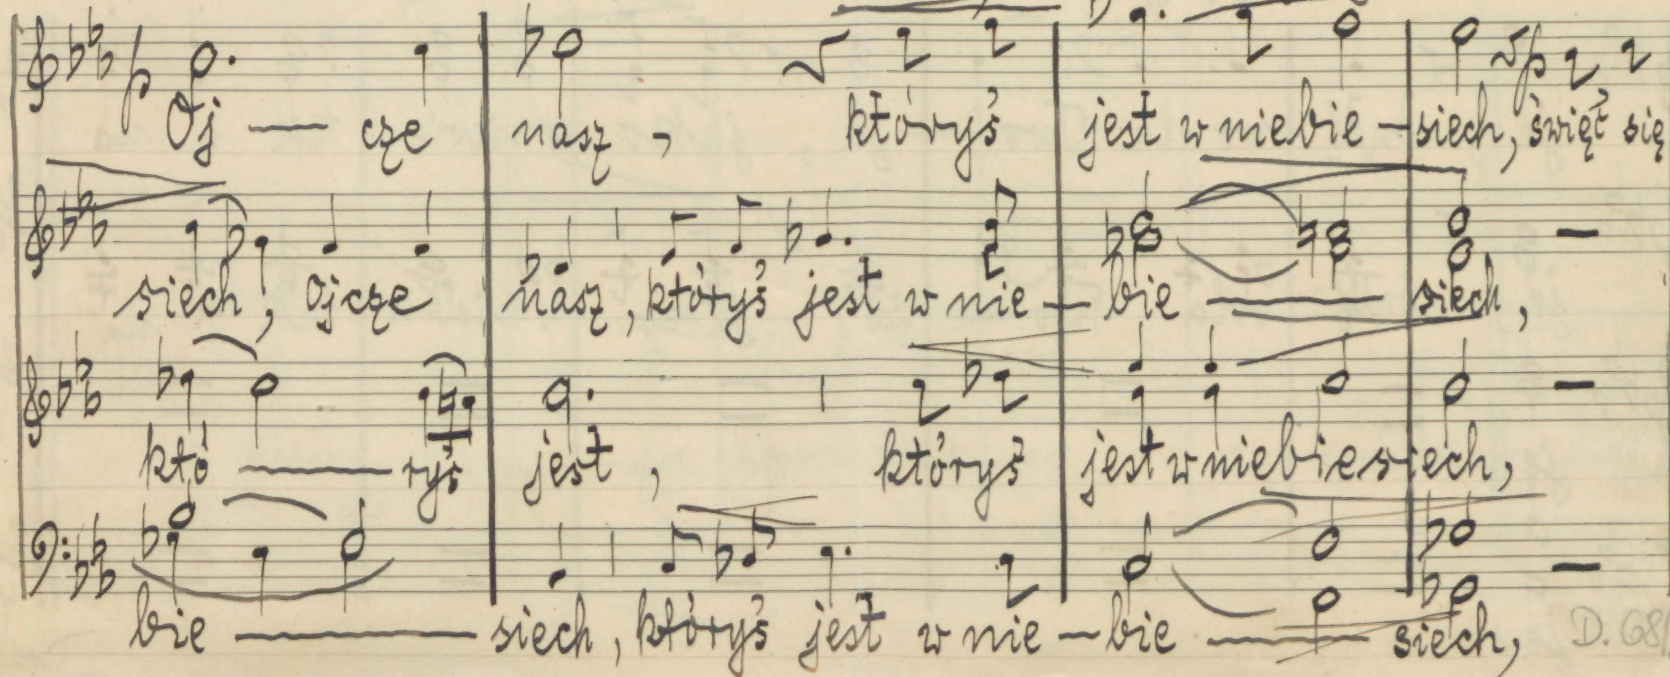 p
Oj — cze nasz, któryś jest w niebie – siech, święć się
p
siech, Ojcze nasz, któryś jest w nie – bie — siech,
któ — ryś jest, któryś jest w niebiesiech,
bie — siech, któryś jest w nie – bie — siech,
D. 68